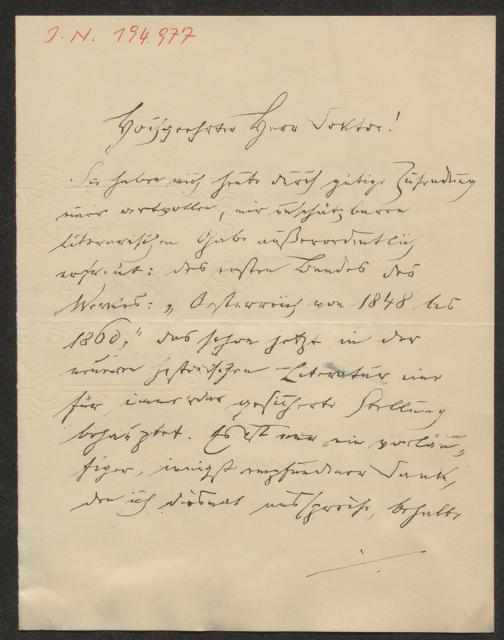 J. N. 194.977
Hochgeehrter Herr Doktor!
Sie haben mich heute durch gütige Zusendung
einer wertvollen, mir unschätzbaren
literarischen Gabe außerordentlich
erfreut: des ersten Bandes des
Werkes: „Oesterreich von 1848 bis
1860," das schon jetzt in der
neueren historischen Literatur eine
für immerdar gesicherte Stellung
behauptet. Es ist nur ein vorläu-
figer, innigst empfundener Dank,
den ich diesmal ausspreche, behalte